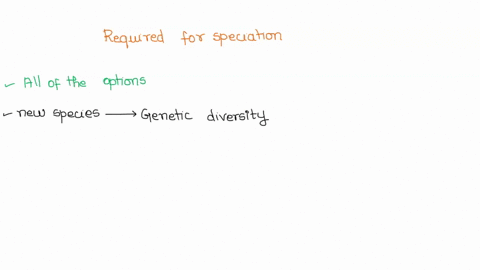 Required for speciation
✓ All of the options
✓ new species ⟶ Genetic diversity